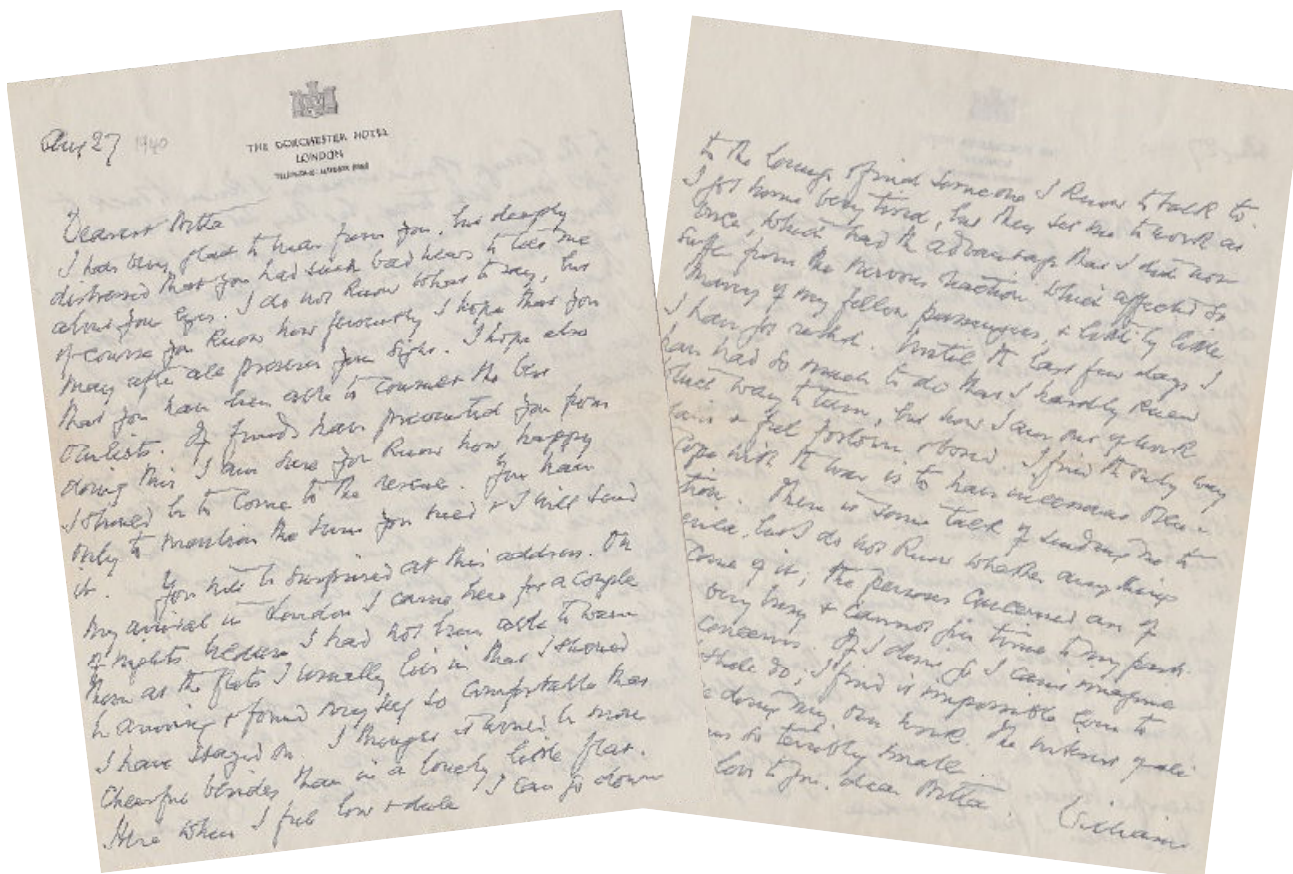 Aug 27 1940
THE DORCHESTER HOTEL
LONDON
Dearest Britta
I was very glad to hear from you, but deeply
distressed that you had such bad news to tell me
about your eyes. I do not know what to say, but
of course you know how ferociously I hope that you
may after all preserve your sight. I hope also
that you have been able to consult the best
oculists. If funds have prevented you from
doing this I am sure you know how happy
I should be to come to the rescue. You have
only to mention the sum you need & I will send
it. You will be surprised at this address. On
my arrival in London I came here for a couple
of nights because I had not been able to warn
them at the flats I usually live in that I should
be arriving & found myself so comfortable that
I have stayed on. I thought it would be more
cheerful besides than in a lonely little flat.
Here when I feel low & dull I can go down
to the lounge & find someone I know to talk to.
I got home very tired, but they set me to work at
once, which had the advantage that I did not
suffer from the nervous reaction which affected so
many of my fellow passengers, & little by little
I have got rested. Until the last few days I
have had so much to do that I hardly knew
which way to turn, but now I am out of work
again & feel forlorn &. I find the only way
cope with the war is to have incessant occupa-
tion. There is some talk of sending me to
but I do not know whether anything
come of it; the persons concerned are of
very busy & cannot give time to my
concerns. If I don't go I can't imagine
I shall do; I find it impossible to
be doing my own work. The interest
so terribly small.
love to you, dear Britta.
William